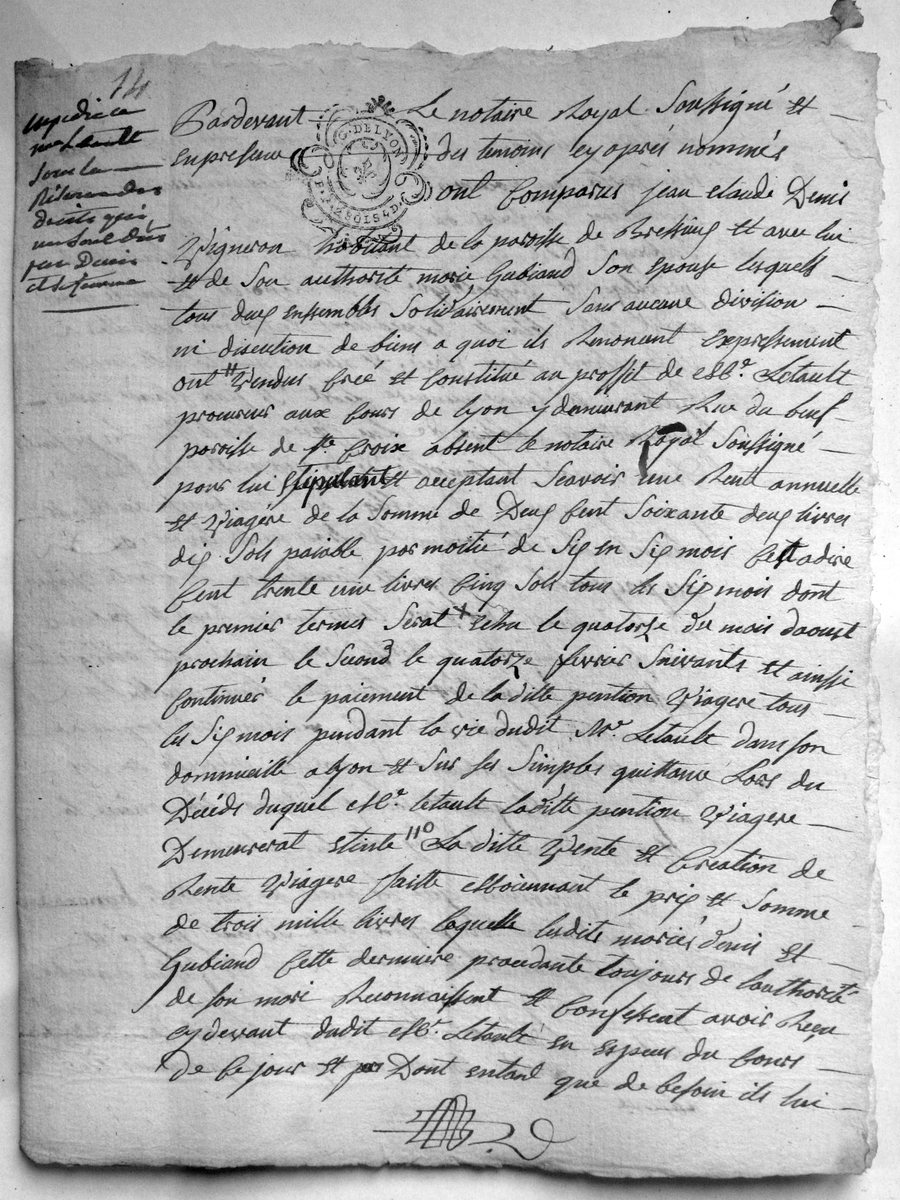 14
expédié a
mre Letault
sous la
Réserve des
droits qui
me sont dûs
par Denis
et sa femme
Pardevant Le notaire Royal Soussigné et
en presence des temoins cy après nommés
G. DE LYON
ont Comparus jean claude Denis
Vigneron habitant de la paroisse de et avec lui
et de Son authorité marie Gubiand Son Epouse lesquels
tous deux ensembles Solidairement Sans aucune division
ni discution de biens a quoi ils Renoncent Expressement
ont Vendus Créé et Constitué au proffit de Mr. Letault
procureur aux Cours de Lyon y demeurant Rue du beuf
paroisse de Ste Croix absent le notaire Royal Soussigné
pour lui Stipulant et acceptant Scavoir une Rente annuelle
et Viagère de la Somme de Deux Cent Soixante deux livres
dix Sols paiable par moitié de Six en Six mois Cest adire
Cent trente une livres Cinq Sols tous les Six mois dont
le premier termes Serat Echu le quatorze du mois daoust
prochain le Second le quatorze fevrier Suivants et ainsi
Continuer le paiement de la ditte pention Viagere tous
les Six mois pendant la vie dudit Mr. Letault dans son
dommicille a Lyon et Sur Ses Simples quittance Lors du
Décéds duquel Mr. Letault laditte pention Viagere
Demeurerat Etinte La ditte Vente et Creation de
Rente Viagere faitte Moiennant le prix et Somme
de trois mille livres laquelle lesdits mariés Denis et
Gubiand Cette dernière procedante toujours de lauthorité
de son mari Reconnaissent et Confessent avoir Reçu
cy devant dudit Mr. Letault en Especes du Cours
de Ce jour et Dont entant que de besoin ils lui